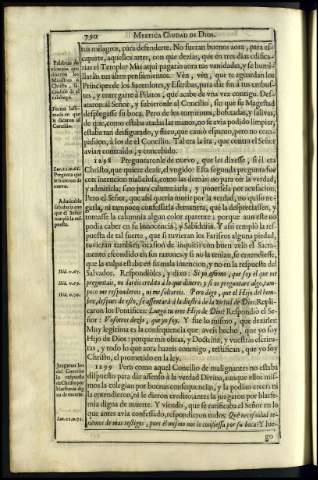 790
MYSTICA CIUDAD DE DIOS.
tus milagros, para defenderte. No fueran buenos aora, para es-
caparte, aquellos antes, con que dezias, que en tres dias edifica-
rias el Templo? Mas aqui pagarás aora tus vanidades, y se humi-
llarán tus altos pensamientos. Vèn, vèn, que te aguardan los
Principes de los Sacerdotes, y Escribas, para dàr fin à tus embus-
tes, y entregarte à Pilatos, que acabe de una vez contigo. Des-
ataron al Señor, y subieronle al Concilio, sin que su Magestad
desplegasse su boca. Pero de los tormentos, bofetadas, y salivas,
de que, como estaba atadas las manos, no se avia podido limpiar,
estaba tan desfigurado, y flaco, que causò espanto, pero no com-
passion, à los de el Concilio. Tal era la ira, que contra el Señor
avian contraìdo, y concebido.
1298 Preguntaronle de nuevo, que les dixesse, si èl era
Christo, que quiere dezir, el ungido? Esta segunda pregunta fue
con intencion maliciosa, como las demàs; no para oìr la verdad,
y admitirla; sino para calumniarla, y ponersela por acusacion.
Pero el Señor, que assi queria morir por la verdad, no quiso ne-
garla, ni tampoco confessarla de manera, que la despreciassen, y
tomasse la calumnia algun color aparente; porque aun este no
podia caber en su inocencia, y Sabiduria. Y assi templò la res-
puesta de tal suerte, que si tuvieran los Fariseos alguna piedad,
tuvieran tambien ocasion de inquirir con buen zelo el Sacra-
mento escondido en sus razones; y si no la tenian, se entendiesse,
que la culpa estaba en su mala intencion, y no en la respuesta del
Salvador. Respondiòles, y dixo: Si yo afirmo, que soy el que me
preguntais, no daréis credito à lo que dixere; y si os preguntare algo, tam-
poco me respondereis, ni me soltareis. Pero digo, que el Hijo del hom-
bre, despues de esto, se assentarà à la diestra de la virtud de Dios. Repli-
caron los Pontifices: Luego tu eres Hijo de Dios? Respondiò el Se-
ñor: Vosotros dezis, que yo soy. Y fue lo mismo, que dezirles:
Muy legitima es la consequencia que aveis hecho, que yo soy
Hijo de Dios; porque mis obras, y Doctrina, y vuestras escritu-
ras, y todo lo que aora haceis conmigo, testifican, que yo soy
Christo, el prometido en la ley.
1299 Pero como aquel Concilio de malignantes no estaba
dispuesto para dàr assenso à la verdad Divina, aunque ellos mis-
mos la colegian por buenas consequencias, y la podian creer; ni
la entendieron, ni le dieron credito; antes la juzgaron por blasfe-
mia digna de muerte. Y viendo, que se ratificaba el Señor en lo
que antes avia confessado, respondieron todos: Què necessidad te-
nemos de mas testigos, pues èl mismo nos lo confiessa por su boca? Y lue-
go